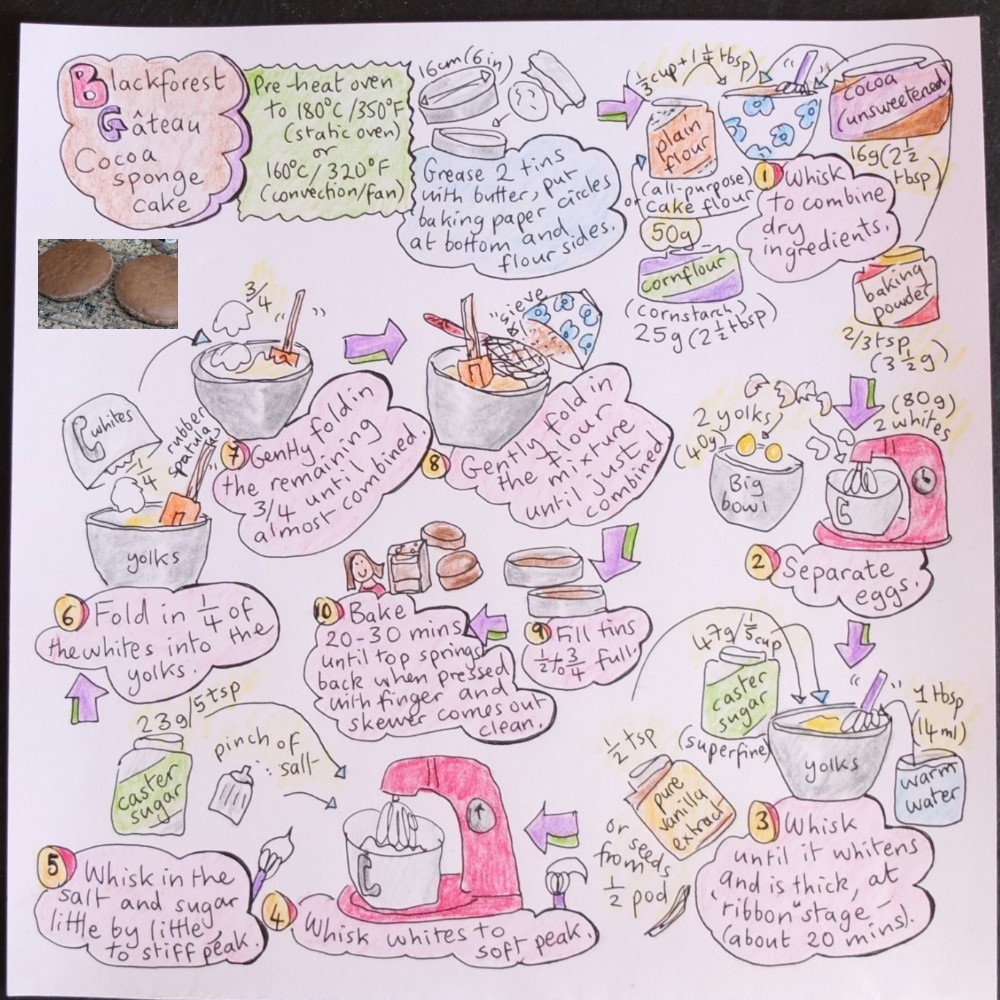 Blackforest
Gâteau
Cocoa
sponge
cake
Pre-heat oven
to 180°C/350°F
(static oven)
or
160°C/320°F
(convection/fan)
16cm(6in)
Grease 2 tins
with butter, put
baking paper circles
at bottom and
flour sides.
(1/3 cup + 1 1/4 tbsp)
plain
flour
(all-purpose)
or cake flour
50g
cornflour
(cornstarch)
25g (2 1/2 tbsp)
cocoa
(unsweetened)
16g (2 1/2
tbsp)
1 Whisk
to combine
dry
ingredients.
baking
powder
2/3 tsp
(3 1/2 g)
2 yolks
(40g)
Big
bowl
(80g)
2 whites
2 Separate
eggs.
47g/1/5 cup
caster
sugar
(superfine)
yolks
1 tbsp
(14ml)
warm
water
1/2 tsp
pure
vanilla
extract
or
seeds
from
1/2 pod
3 Whisk
until it whitens
and is thick, at
"ribbon" stage -
(about 20 mins).
4 Whisk whites to
soft peak.
23g/5 tsp
caster
sugar
pinch of
salt
5 Whisk in the
salt and sugar
little by little
to stiff peak.
whites
1/4
rubber
spatula
yolks
6 Fold in 1/4 of
the whites into the
yolks.
3/4
7 Gently fold in
the remaining
3/4 until
almost combined
sieve
8 Gently fold in
the flour
mixture
until just
combined
9 Fill tins
1/2 to 3/4 full.
10 Bake
20-30 mins
until top springs
back when pressed
with finger and
skewer comes out
clean.